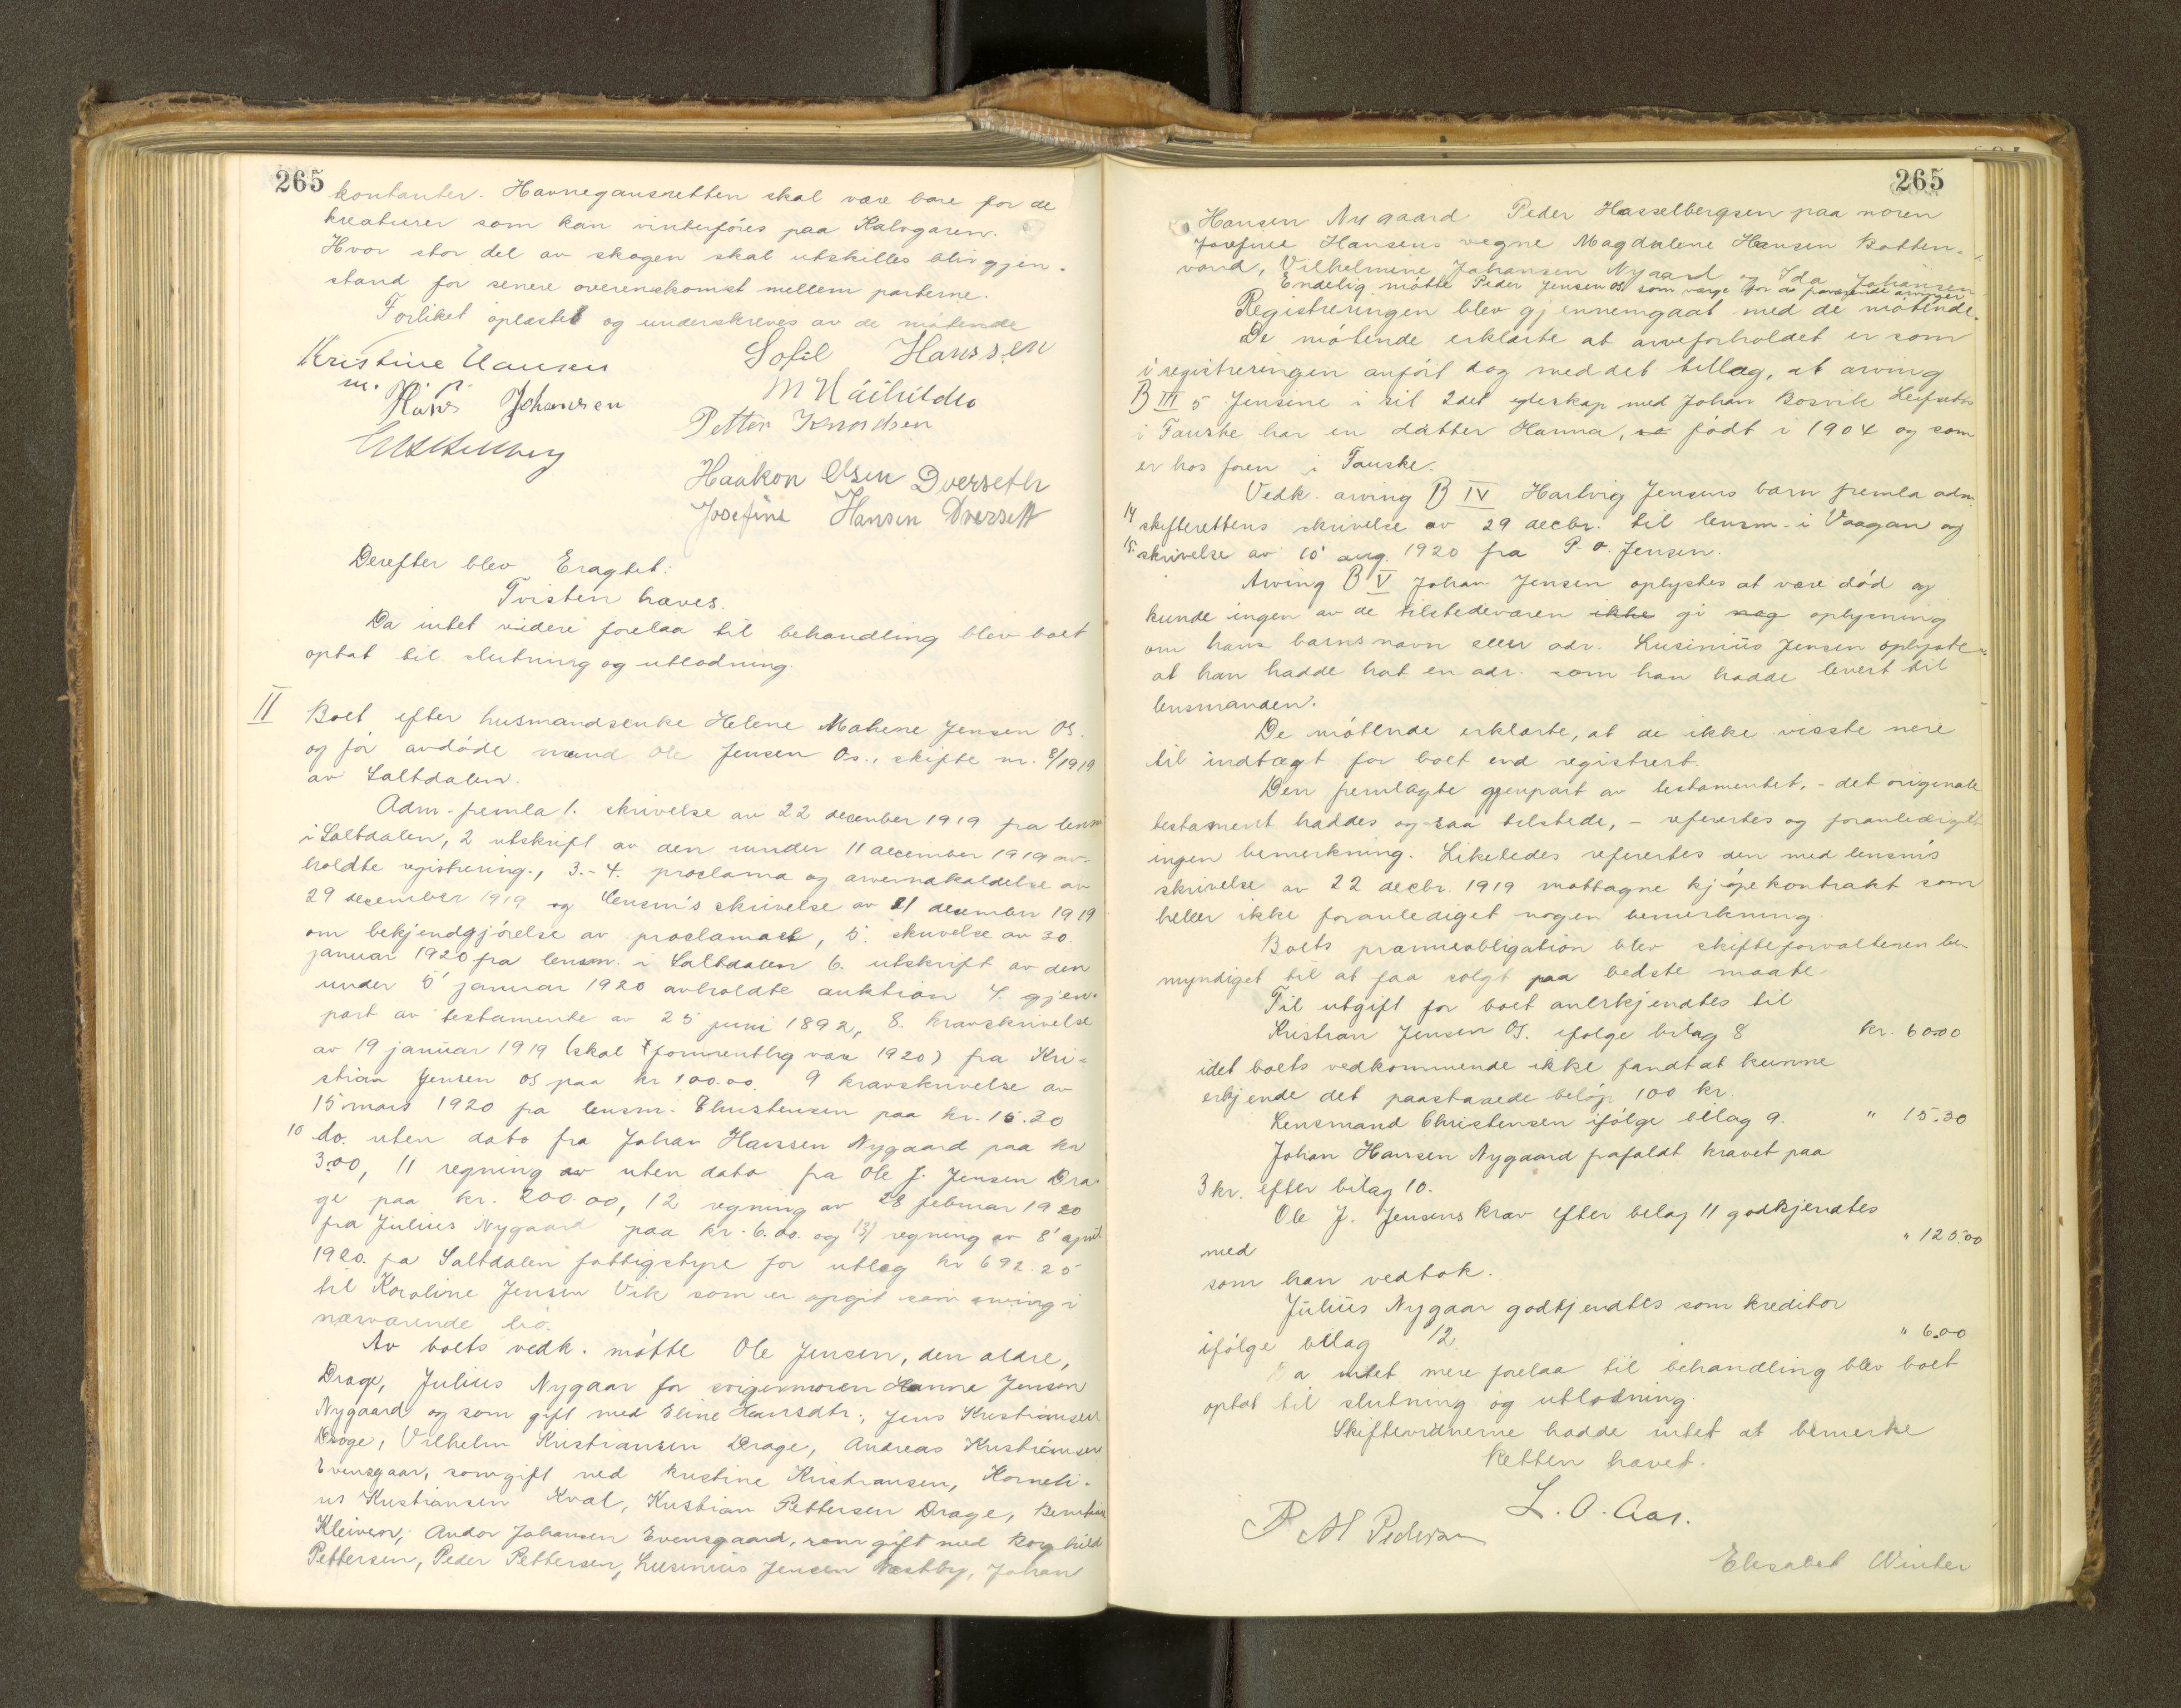 265
kontanter. Havnegangsretten skal være bare for de
kreaturer som kan vinterföres paa Kalvgaren.
Hvor stor del av skogen skal utskilles blir gjen-
stand for senere overenskomst mellem parterne.
Forliket oplæstes og underskreves av de mötende
Kristine Hansen Sofil Hanssen
m. p.
Hans Johansen
Petter Knordsen
Haakon Olsen Dverseth
Josefine Hansen Dversett
Derefter blev Eragtet:
Tvisten hæves.
Da intet videre forelaa til behandling blev boet
optat til slutning og utlodning.
II Boet efter husmandsenke Helene Malene Jensen Os.
og för avdöde mand Ole Jensen Os., skifte nr. 8/1919
av Saltdalen.
Adm. fremla 1. skrivelse av 22 december 1919 fra lensm
i Saltdalen, 2 utskrift av den under 11 december 1919 av-
holdte registrering., 3.-4. proclama og arveindkaldelse av
29 december 1919 og lensm's skrivelse av 31 desember 1919
om bekjendgjörelse av proclamaet, 5. skrivelse av 30.
januar 1920 fra lensm. i Saltdalen 6. utskrift av den
under 5' januar 1920 avholdte auktion 7. gjen-
part av testamente av 25 juni 1892, 8. kravskrivelse
av 19 januar 1919 (skal formentlig være 1920) fra Kri-
stian Jensen Os paa kr 100.00. 9 kravskrivelse av
15 mars 1920 fra lensm. Christensen paa kr. 15.30
10 do. uten dato fra Johan Hansen Nygaard paa kr
3.00, 11 regning av uten dato fra Ole J. Jensen Dra-
ge paa kr. 200.00, 12 regning av 28 februar 1920
fra Julius Nygaard paa kr. 6.00. og 13) regning av 8' april
1920. fra Saltdalen fattigstyre for utlæg kr 692.25
til Karoline Jensen Vik som er opgit som arving i
nærværende bo.
Av boets vedk. mötte Ole Jensen, den ældre,
Drage, Julius Nygaar for svigermoren Hanna Jensen
Nygaard og som gift med Eline Hansdtr., Jens Kristiansen
Drage, Vilhelm Kristiansen Drage, Andreas Kristiansen
Evensgaar, som gift med Kristine Kristiansen, Korneli-
us Kristiansen Kval, Kristian Pettersen Drage, Berntine
Kleiven, Andor Johansen Evensgaard, som gift med Borghild
Pettersen, Peder Pettersen, Lusinius Jensen Næstby, Johan
265
Hansen Nygaard Peder Hasselbergsen paa moren
Josefine Hansens vegne Magdalene Hansen Botten-
vand, Vilhelmine Johansen Nygaard og Ida Johansen
Endelig mötte Peder Jensen Os. som værge for de fraværende arvinger
Registreringen blev gjennemgaat med de mötende.
De mötende erklærte at arveforholdet er som
i registreringen anfört dog med det tillæg, at arving
B III 5 Jensine i sit 2det egteskap med Johan Bosvik Leifseth
i Fauske har en datter Hanna, födt i 1904 og som
er hos faren i Fauske.
Vedk. arving B IV Hartvig Jensens barn fremla adm.
14 skifterettens skrivelse av 29 decbr. til lensm. i Vaagan og
15. skrivelse av 10' aug. 1920 fra P. O. Jensen.
Arving B V Johan Jensen oplystes at være död og
kunde ingen av de tilstedeværen ikke gi nog oplysning
om hans barns navn eller adr. Lusinius Jensen oplyste
at han hadde hat en adr. som han hadde levert til
lensmanden.
De mötende erklærte, at de ikke visste mere
til indtægt for boet end registrert.
Den fremlagte gjenpart av testamentet, - det originale
testament haddes og saa tilstede, - refererdes og foranlediget
ingen bemerkning. Likeledes refererdes den med lensm's
skrivelse av 22 decbr. 1919 mottagne kjöpekontrakt som
heller ikke foranlediget nogen bemerkning.
Boets præmieobligation blev skifteforvalteren be-
myndiget til at faa solgt paa bedste maate.
Til utgift for boet anerkjendtes til
Kristian Jensen Os. ifölge bilag 8 kr. 60.00
idet boets vedkommende ikke fandt at kunne
erkjende det paastaaede belöp 100 kr.
Lensmand Christensen ifölge bilag 9. " 15.30
Johan Hansen Nygaard frafaldt kravet paa
3 kr. efter bilag 10.
Ole J. Jensens krav efter bilag 11 godkjendtes
med " 125.00
som han vedtok.
Julius Nygaar godkjendtes som kreditor
ifölge bilag 12. " 6.00
Da intet mere forelaa til behandling blev boet
optat til slutning og utlodning.
Skiftevidnerne hadde intet at bemerke
Retten hævet.
L. O. Aas.
P M Pedersen
Elisabet Winter